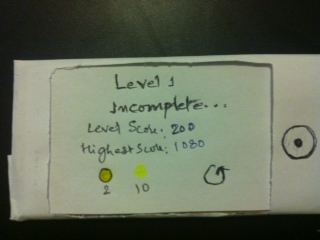 Level 1
Incomplete...
Level Score: 200
Highest Score: 1080
2 10